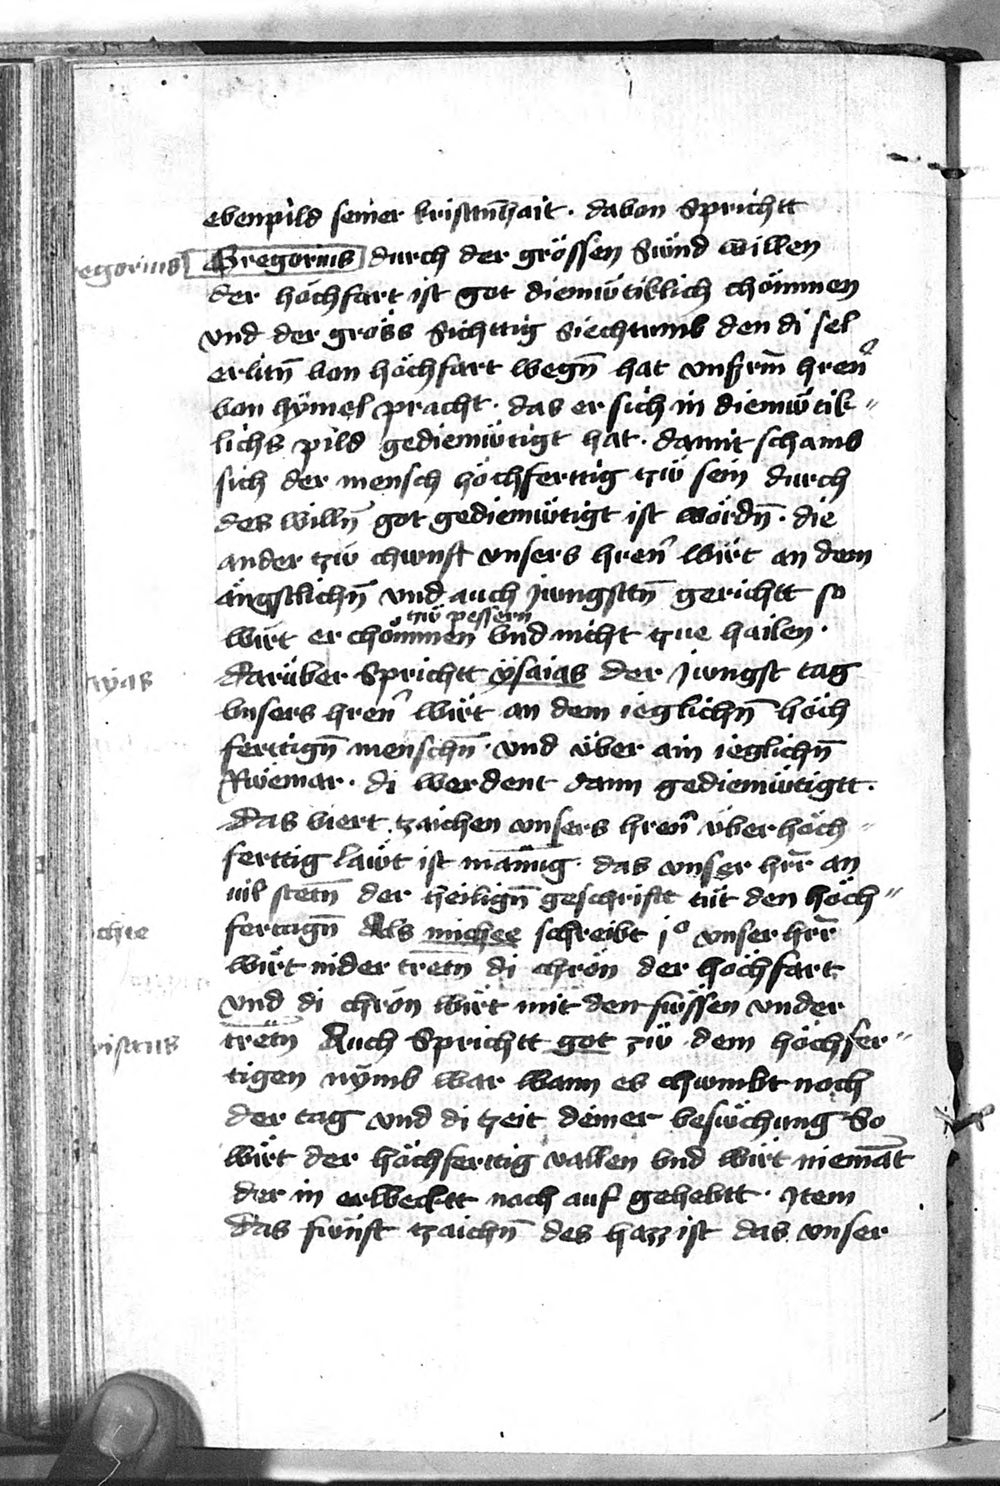 ebenpild seiner kristtn̄hait · davon Sprichtt
egorius Gregorius durch der grössen Sünd willen
der höchfart ist got diemütiklich chömmen
vnd der gröss Sichttig Siechtumb den di sel
erlitn̄ von höchfart wegn̄ hat vnsrm̄ hren̄
von hymel pracht · das er sich in diemütik〃
lichs pild gediemütigt hat · damit schamb
sich der mensch höchferttig tzü sein durch
des willn̄ got gediemütigt ist wördn̄ · die
ander tzü chunft vnsers hren̄ wirt an dem
ängstlichn̄ vnd auch jungsttn̄ gerichtt so
tzü pessern
wirt er chömmen vnd nicht tzue hailen ·
darüber Sprichtt ysaias der jungst tag
vnsers hren̄ wirt an dem ieglichn̄ höch
ferttign̄ menschn̄ · vnd über ain ieglichn̄
Rüemar · di werdent dann gediemütigtt ·
Das viert tzaichen vnsers hren̄ über höch〃
ferttig läwt ist mānig · das vnser hr̄r an
uil stetn̄ der heiligñ geschrift tüt den höch〃
chie fertign̄ Als michee schreibt jo vnser hr̄r
wirt nider tretn̄ di chrön der höchfart
vnd di chrön wirt mit den füssen vnder
ristus tretn̄ Auch Sprichtt got zü dem höchfer〃
tigen nymb war wann es chumbt noch
der tag vnd di tzeit deiner besüchung So
wirt der höchferttig vallen vnd wirt niemāt
der in erwecktt noch auf gehebtt · Item
das fünft tzaichn̄ des hazz ist das vnser